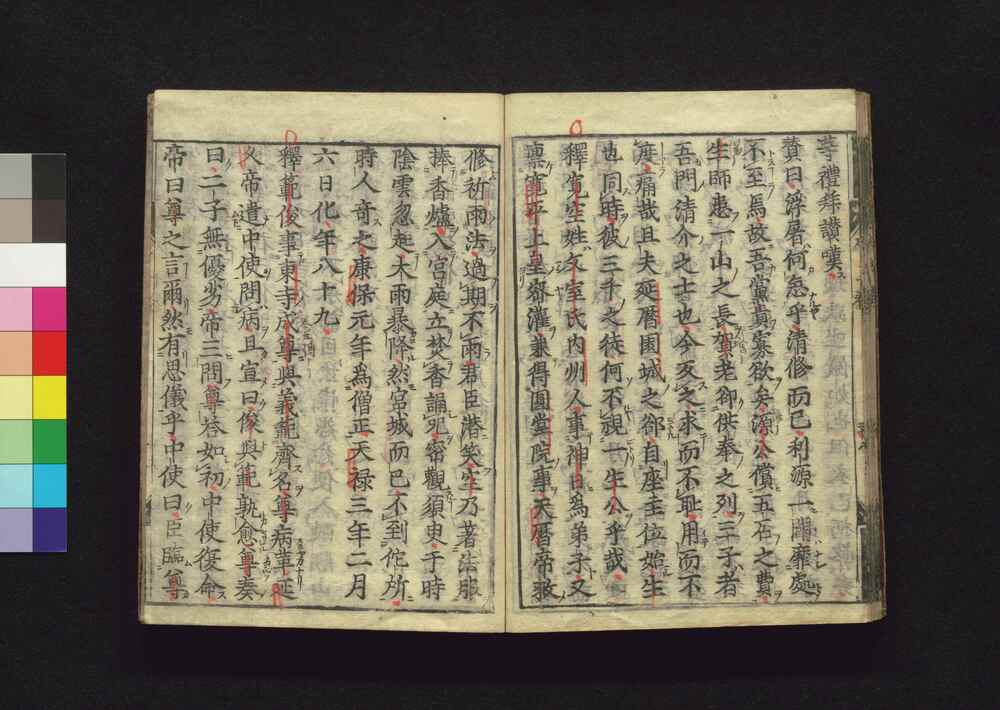 等禮拜讃嘆
贊曰浮屠何急乎清修而已利源一開靡處
不至焉故吾黨眞寡欲矣源公償五石之費
生師患一山之長賀老卻供奉之列三子者
吾門清介之士也今夫之求而不恥用而不
度痛哉且夫延曆園城之卻自座主位始生
也同時彼三千之徒何不視一生公乎哉
釋寬空姓文室氏內州人事神日爲弟子又
稟寬平上皇密灌兼得圓堂院事天曆帝敕
修祈雨法過期不雨君臣潜笑空乃著法服
捧香爐入宮庭立焚香誦咒密觀須臾于時
陰雲忽起大雨暴降然宮城而已不到佗所
時人奇之康保元年爲僧正天禄三年二月
六日化年八十九
釋範俊事東寺成尊與義範齊名尊病革延
久帝遣中使問病且宣曰俊與範孰愈尊奏
曰二子無優劣帝三問尊答如初中使復命
帝曰尊之言爾然有思儀乎中使曰臣臨尊